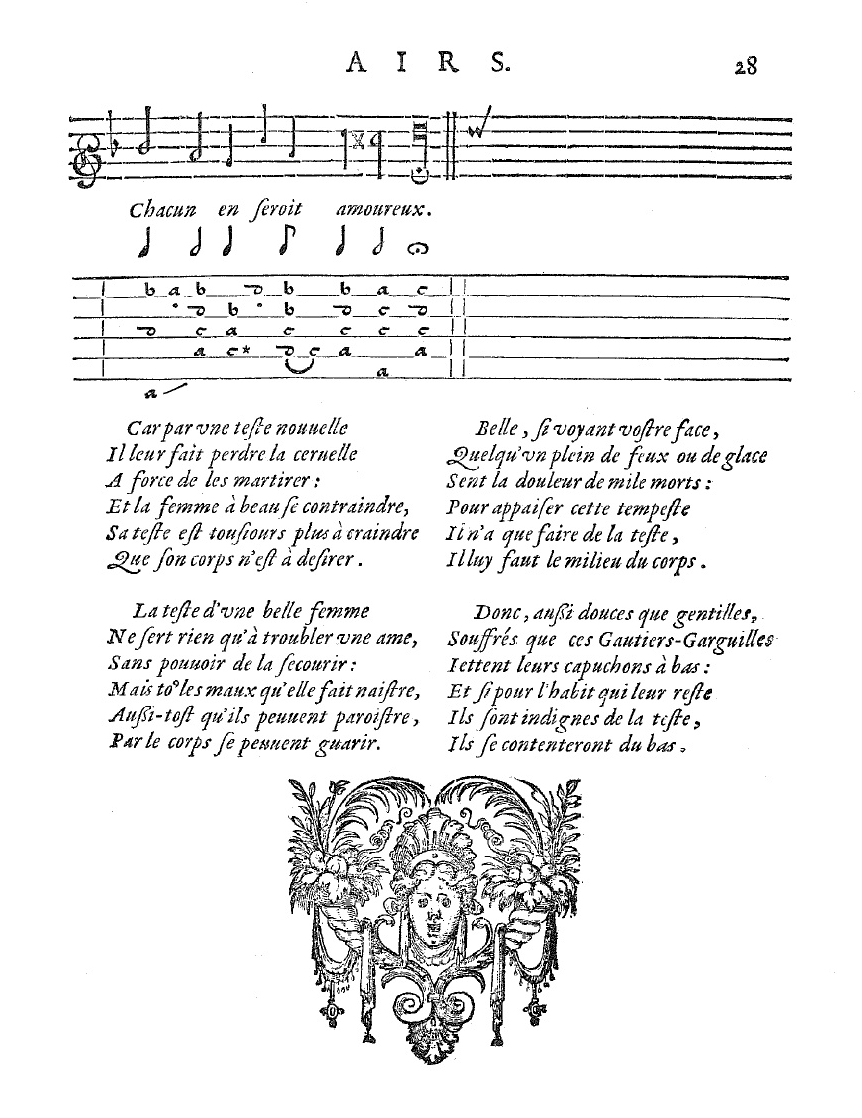 AIRS.
28
Chacun en ſeroit amoureux.
b a b ꝺ b b a c
ꝺ b b ꝺ c ꝺ
ꝺ c a c c c c
a c* ꝺ c a a
a
a
Car par vne teſte nouuelle
Il leur fait perdre la ceruelle
A force de les martirer :
Et la femme à beau ſe contraindre,
Sa teſte eſt touſiours plus à craindre
Que ſon corps n'eſt à deſirer.
La teſte d'vne belle femme
Ne ſert rien qu'à troubler vne ame,
Sans pouuoir de la ſecourir :
Mais to⁹ les maux qu'elle fait naiſtre,
Außi-toſt qu'ils peuuent paroiſtre,
Par le corps ſe peuuent guarir.
Belle, ſi voyant voſtre face,
Quelqu'vn plein de feux ou de glace
Sent la douleur de mile morts :
Pour appaiſer cette tempeſte
Il n'a que faire de la teſte,
Il luy faut le milieu du corps.
Donc, außi douces que gentilles,
Souffrés que ces Gautiers-Garguilles
Iettent leurs capuchons à bas :
Et ſi pour l'habit qui leur reſte
Ils ſont indignes de la teſte,
Ils ſe contenteront du bas.